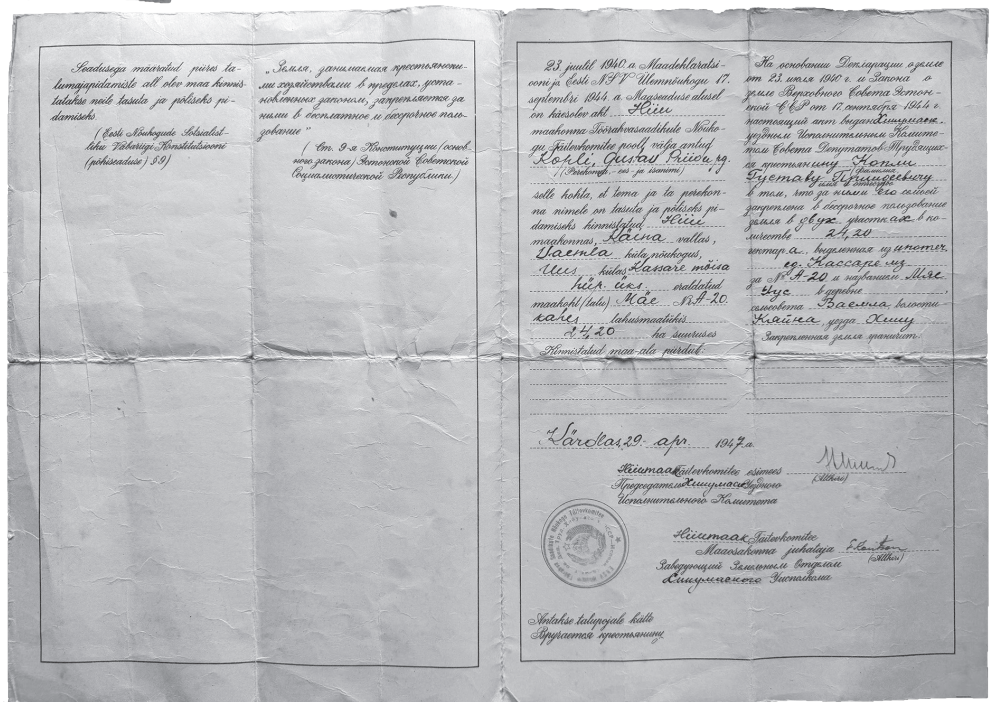 Seadusega määratud piires ta-
lumajapidamiste all olev maa kinnis-
tatakse neile tasuta ja põliseks pi-
damiseks.
(Eesti Nõukogude Sotsialist-
liku Vabariigi Konstitutsiooni
(põhiseaduse) § 9)
„Земля, занимаемая крестьянски-
ми хозяйствами в пределах, уста-
новленных законом, закрепляется за
ними в бесплатное и бессрочное поль-
зование"
( Ст. 9-я Конституции (основ-
ного закона) Эстонской Советской
Социалистической Республики.)
23. juulil 1940. a. Maadeklaratsi-
ooni ja Eesti NSV Ülemnõukogu 17.
septembri 1944. a. Maaseaduse alusel
on käesolev akt Hiiu
maakonna Töörahvasaadikute Nõuko-
gu Täitevkomitee poolt välja antud
Kopli, Gustav Priidu pg.
(Perekonna-, ees- ja isanimi)
selle kohta, et tema ja ta perekon-
na nimele on tasuta ja põliseks pi-
damiseks kinnistatud Hiiu
maakonnas, Käina vallas,
Vaemla küla nõukogus,
Uus külas Kassare mõisa
hüp. üks. eraldatud
maakoht (talu) Mäe Nr. A-20
kahes lahusmaatükis
24,20 ha suuruses
Kinnistatud maa-ala piirdub:
На основании Декларации о земле
от 23. июля 1940 г. и Закона о
земле Верховного Совета Эстон-
ской ССР от 17. сентября 1944 г.
настоящий акт выдан Хиумаск.
уездным Исполнительным Комите-
том Совета Депутатов Трудящих-
ся крестьянину Копли
(фамилия
Густаву Приидовичу
имя и отчество)
в том, что за ним и его семьей
закреплена в бессрочное пользование
земля в двух участках в ко-
личестве 24,20
гектара, выделенная из ипотеч.
ед. Кассаре мз
за № А-20 и названием Мяе
Уус в деревне
сельсовета Ваемла волости
Кяйна, уезда Хииу
Закрепленная земля граничит:
Kärdlas, 29. apr. 1947 a.
Hiiumaa Täitevkomitee esimees
(Allkiri)
Председатель Хиумаск. Уездного
Исполнительного Комитета
Hiiumaa Täitevkomitee
Maaosakonna juhataja
(Allkiri)
Заведующий Земельным Отделом
Хиумаского Уисполкома
Antakse talupojale kätte
Вручается крестьянину